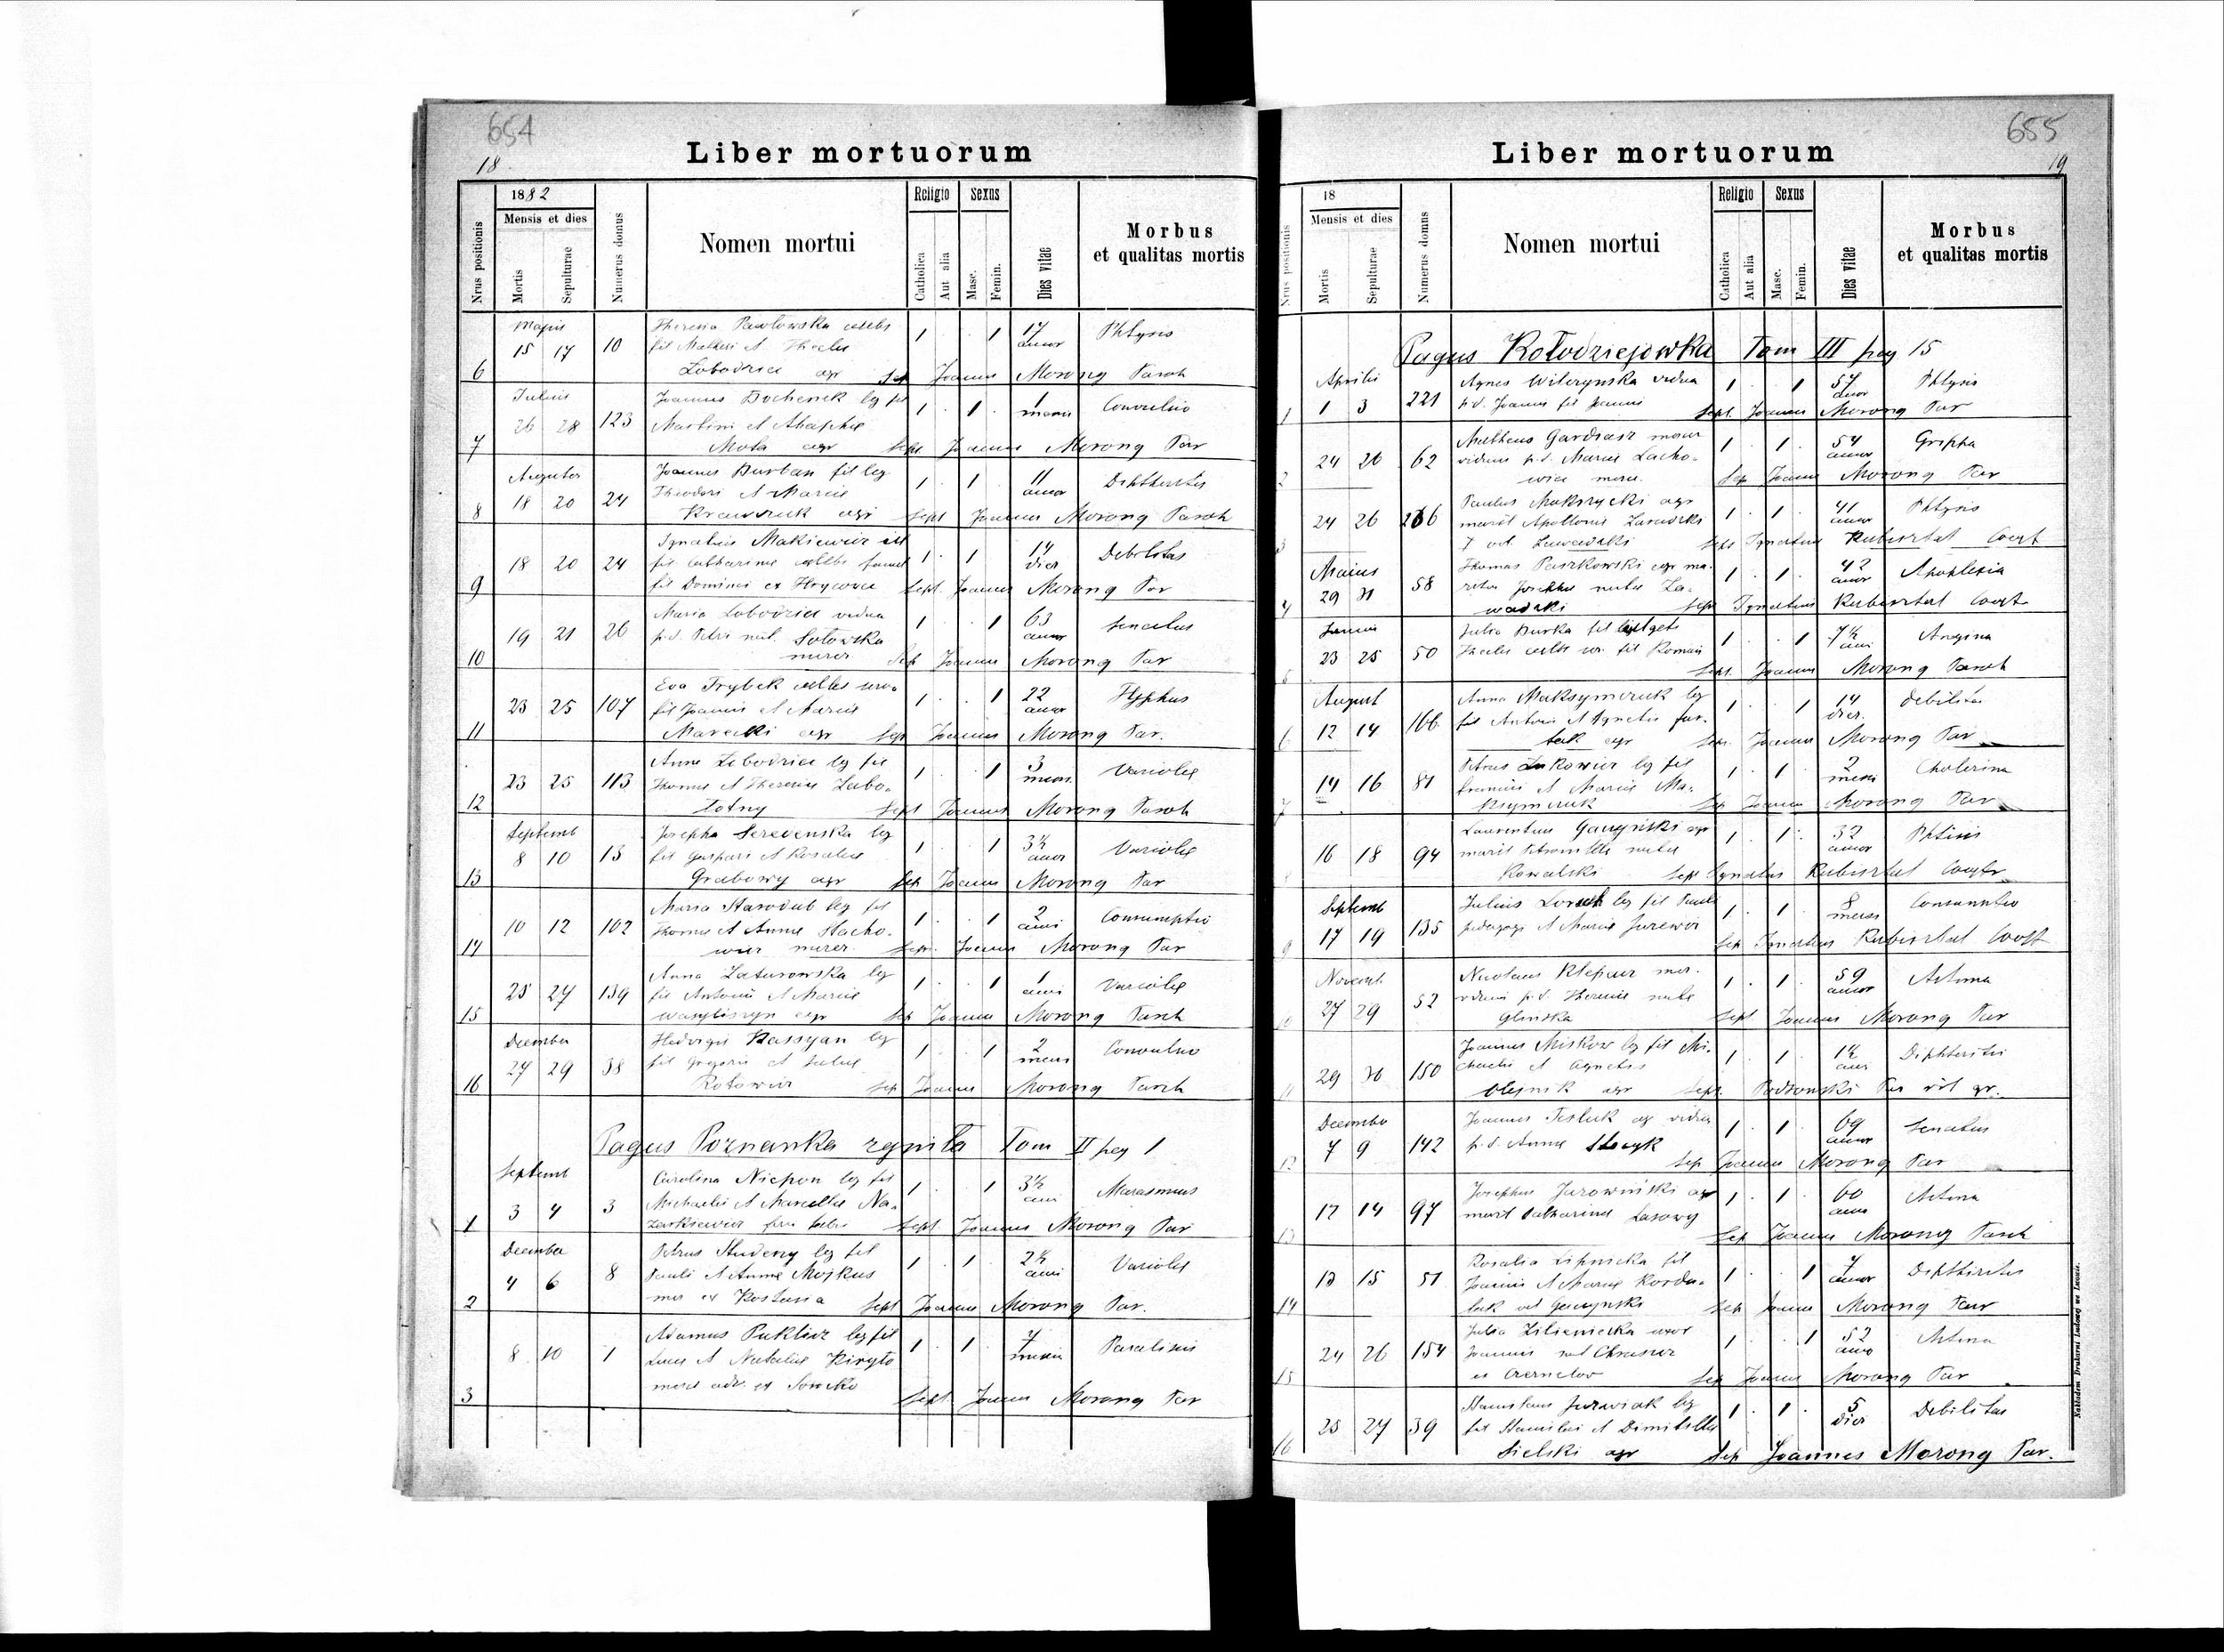 654
18.
Liber mortuorum
Nrus positionis
1882
Mensis et dies
Mortis
Sepulturae
Numerus domus
Nomen mortui
Religio
Catholica
Aut alia
Sexus
Masc.
Femin.
Dies vitae
Morbus
et qualitas mortis
Majus
15 17 10 Theresia Pawłowska celebs 1 1 17 annor Phtysis
fil Mathei et Theclae
6 Lobodzica agr Sep Joannes Morong Paroh
Julius
26 28 123 Joannes Bochenek leg fil 1 1 1 mens Convulsio
Martini et Ahaphie
7 Mota agr Sept Joannes Morong Par
Augustus
18 20 24 Joannes Burban fil leg 1 1 11 annor Diphtheritis
Theodori et Mariae
8 Krawczuk agr Sept Joannes Morong Paroh
18 20 24 Ignatius Makiewicz ill 1 1 14 dier Debilitas
fil Catharinae celebs famul
9 fil Dominici ex Hrycowce Sept. Joannes Morong Par
19 21 26 Maria Lobodzica vidua 1 1 63 annor Senectus
p.d. Petri nat. Sotowska
10 mercr Sep Joannes Morong Par
23 25 107 Eva Trybek celebs 1 1 22 annor Typhus
fil Joannis et Mariae
11 Marecki agr Sep Joannes Morong Par.
23 25 113 Anna Lobodzica leg fil 1 1 3 mens. Variolae
Thomae et Theresiae Zabo-
12 lotny Sept Joannes Morong Paroh
Septemb
8 10 13 Josepha Seredenska leg 1 1 3½ annor Variolae
fil Gaspari et Rosaliae
13 Grabowy agr Sep Joannes Morong Par
10 12 102 Maria Starodub leg fil 1 1 2 anni Consumptio
Thomae et Annae Stacho-
14 wicz mercr. Sep. Joannes Morong Par
25 27 139 Anna Zaturowska leg 1 1 1 anni Variolae
fil Antonii et Mariae
15 Wasyliszyn agr Sep Joannes Morong Paroh
December
27 29 38 Hedvigis Kassyan leg 1 1 2 mens Convulsio
fil Gregorii et Juliae
16 Rotowicz sep Joannes Morong Paroh
Pagus Poznanka zgniła Tom II pag 1
Septemb
3 4 3 Carolina Niepon leg fil 1 1 3½ anni Marasmus
Michaelis et Marcellae Na-
1 zarkiewicz Sept. Joannes Morong Par
December
4 6 8 Petrus Studeny leg fil 1 1 2½ anni Variolae
Pauli et Annae Mojkus
2 mer ex Sept Joannes Morong Par.
8 10 1 Adamus Puklicz leg fil 1 1 7 mensis Paralisis
Lucae et Nataliae Kiryto
3 Sept. Joannes Morong Par
655
19
Liber mortuorum
Nrus positionis
18
Mensis et dies
Mortis
Sepulturae
Numerus domus
Nomen mortui
Religio
Catholica
Aut alia
Sexus
Masc.
Femin.
Dies vitae
Morbus
et qualitas mortis
Pagus Kołodziejowka Tom III pag 15
Aprilis
1 3 221 Agnes Wilczynska vidua 1 1 57 annor Phtysis
1 p.d. Joannis fil Joannis Sept. Joannes Morong Par
24 26 62 Matheus Gardiasz mercr 1 1 54 annor Grippa
viduus p.d. Mariae Lacho-
2 wicz mercr. Sep Joannes Morong Par
24 26 266 Paulus Makszycki agr 1 1 41 annor Phtysis
marit Apolloniae Zawadzki
3 Sept Ignatius Kubisztal Coop
Maius
29 31 58 Thomas Paszkowski agr ma- 1 1 42 annor Apoplexia
ritus Josephae natae Za-
4 wadzki sep Ignatius Kubisztal Coop
Junius
23 25 50 Julia Burka fil 1 1 7½ anni Angina
Theclae celebs fil Romani
Sept. Joannes Morong Paroh
August
12 14 166 Anna Maksymczuk leg 1 1 14 dier. Debilitas
fil Antonii et Agnetis Fur-
6 tak agr Sep. Joannes Morong Par
14 16 81 Petrus Lukowicz leg fil 1 1 2 mens Cholerina
Francisci et Mariae Ma-
7 ksymczuk Sep Joannes Morong Par
16 18 94 Laurentius Gaczyński agr 1 1 32 annor Phtisis
marit Petronellae natae
Kowalski Sept Ignatius Kubisztal Coop
Septemb
17 19 135 Julius fil Pauli 1 1 8 mens Consumtio
9 pedagogi et Mariae Jurewicz Sep Ignatius Kubisztal Coop
Novemb
27 29 52 Nicolaus Klepacz mer. 1 1 59 annor Astma
viduus p.d. Theresiae natae
Glinska Sept. Joannes Morong Par
29 30 150 Joannes Miskow leg fil Mi- 1 1 1½ anni Diphteritis
chaelis et Agnetis
Olejnik agr Sept. Podsonski Par rit gr.
December
7 9 142 Joannes Tesluk agr viduus 1 1 69 annor Senectus
p.d. Annae
12 Sep Joannes Morong Par
12 14 97 Josephus Jurowiński agr 1 1 60 annor Astma
marit Catharinae Lasowy
13 Sep Joannes Morong Paroh
13 15 51 Rosalia Lipnicka fil 1 1 7 annor Diphtheritis
Joannis et Mariae Korda-
14 Sep Joannes Morong Par
24 26 154 Julia Zilieniecka uxor 1 1 52 annor Astma
Joannis nat
15 ex Czernelow Sep Joannes Morong Par
25 27 39 Stanislaus Jurwiak leg 1 1 5 dier Debilitas
fil Stanislai et Dimitillae
16 Sielski agr Sep Joannes Morong Par.
Nakładem Drukarni Ludowej we Lwowie.